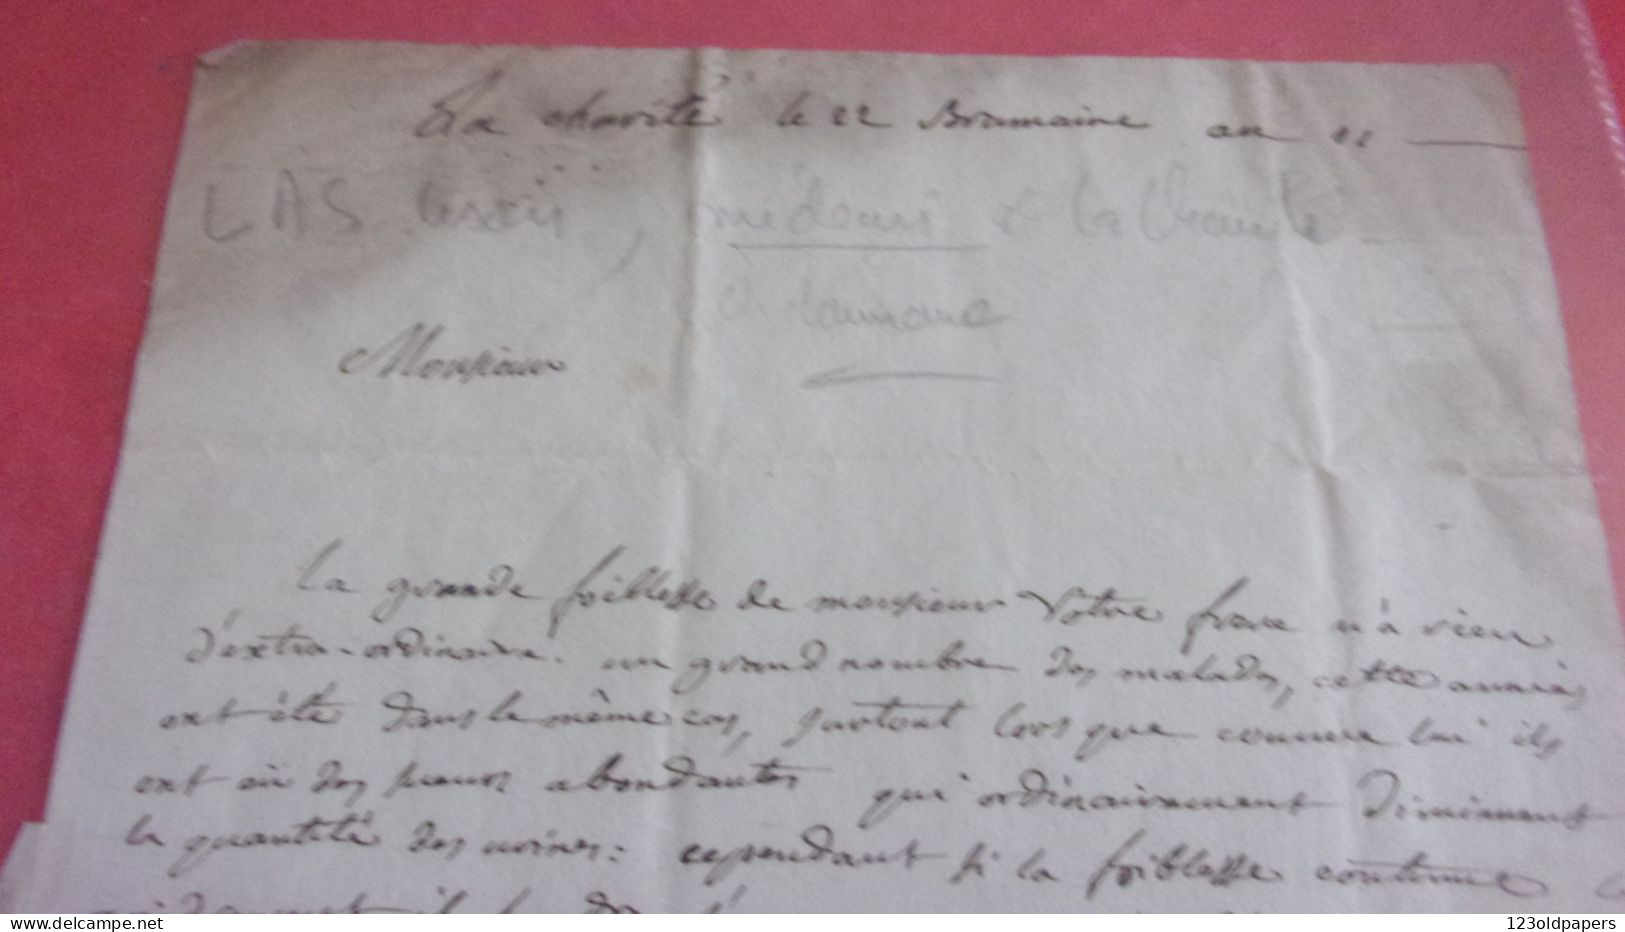 La charité le 22 Brumaire an 11
LAS, médecin à La Charité
Monsieur
la grande foiblesse de monsieur Votre frere n'a rien
d'extra-ordinaire. un grand nombre des malades, cette année,
ont été dans le même cas, surtout lors que comme lui ils
ont eü des sueurs abondantes qui ordinairement diminuent
la quantité des urines: cependant si la foiblesse continue
123oldpapers